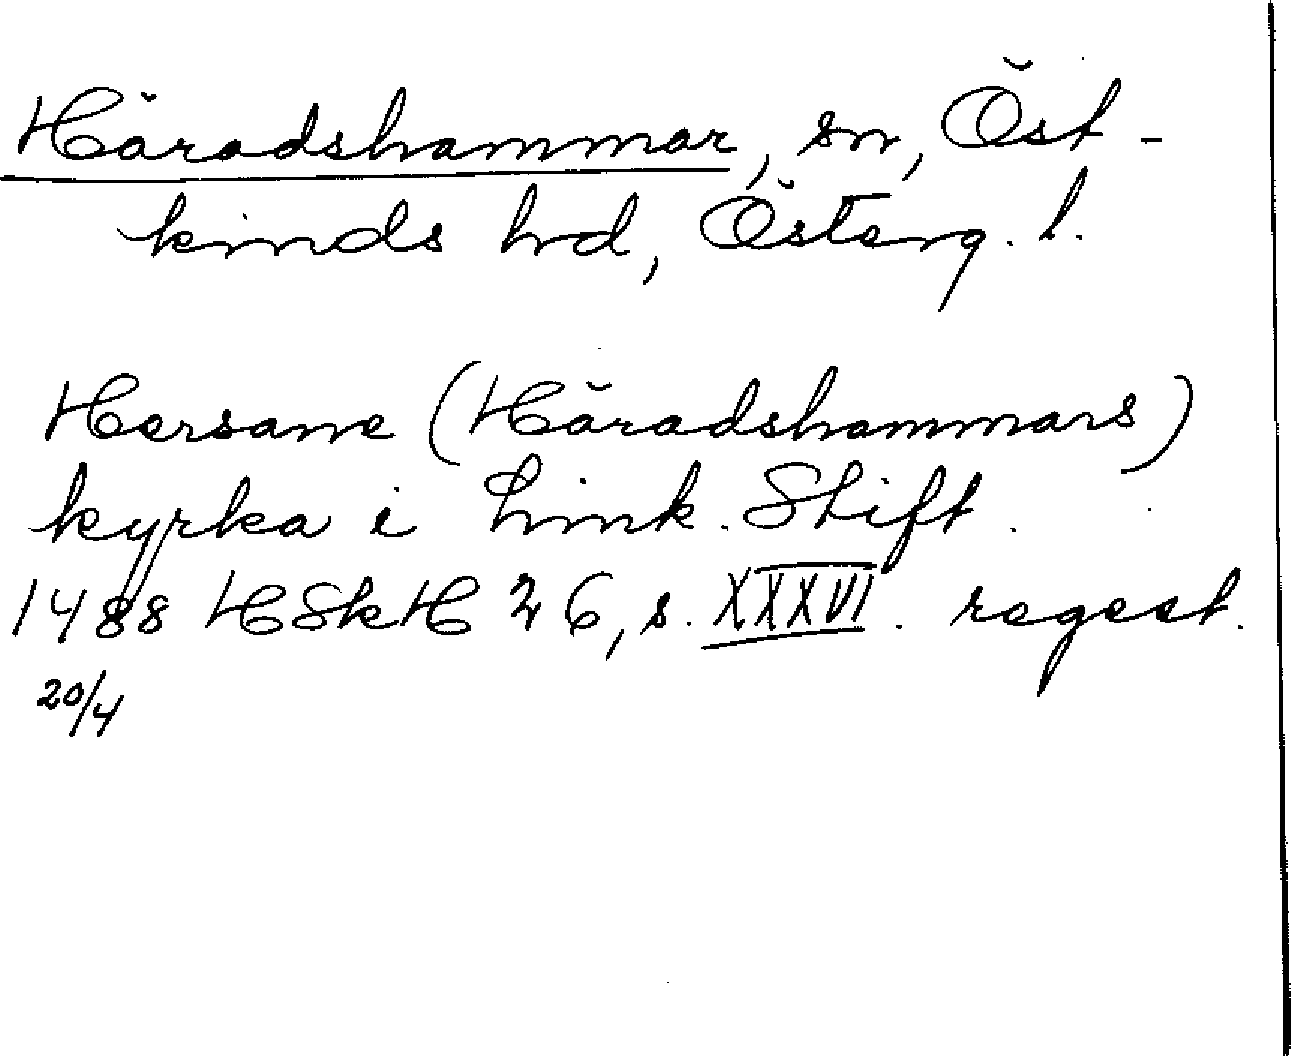 Häradshammar, sn, Öst-
kinds hd, Österg. l.
Hersame (Häradshammars)
kyrka i Link. Stift.
1488 HSkH 26, s. XXXVI. regest.
20/4